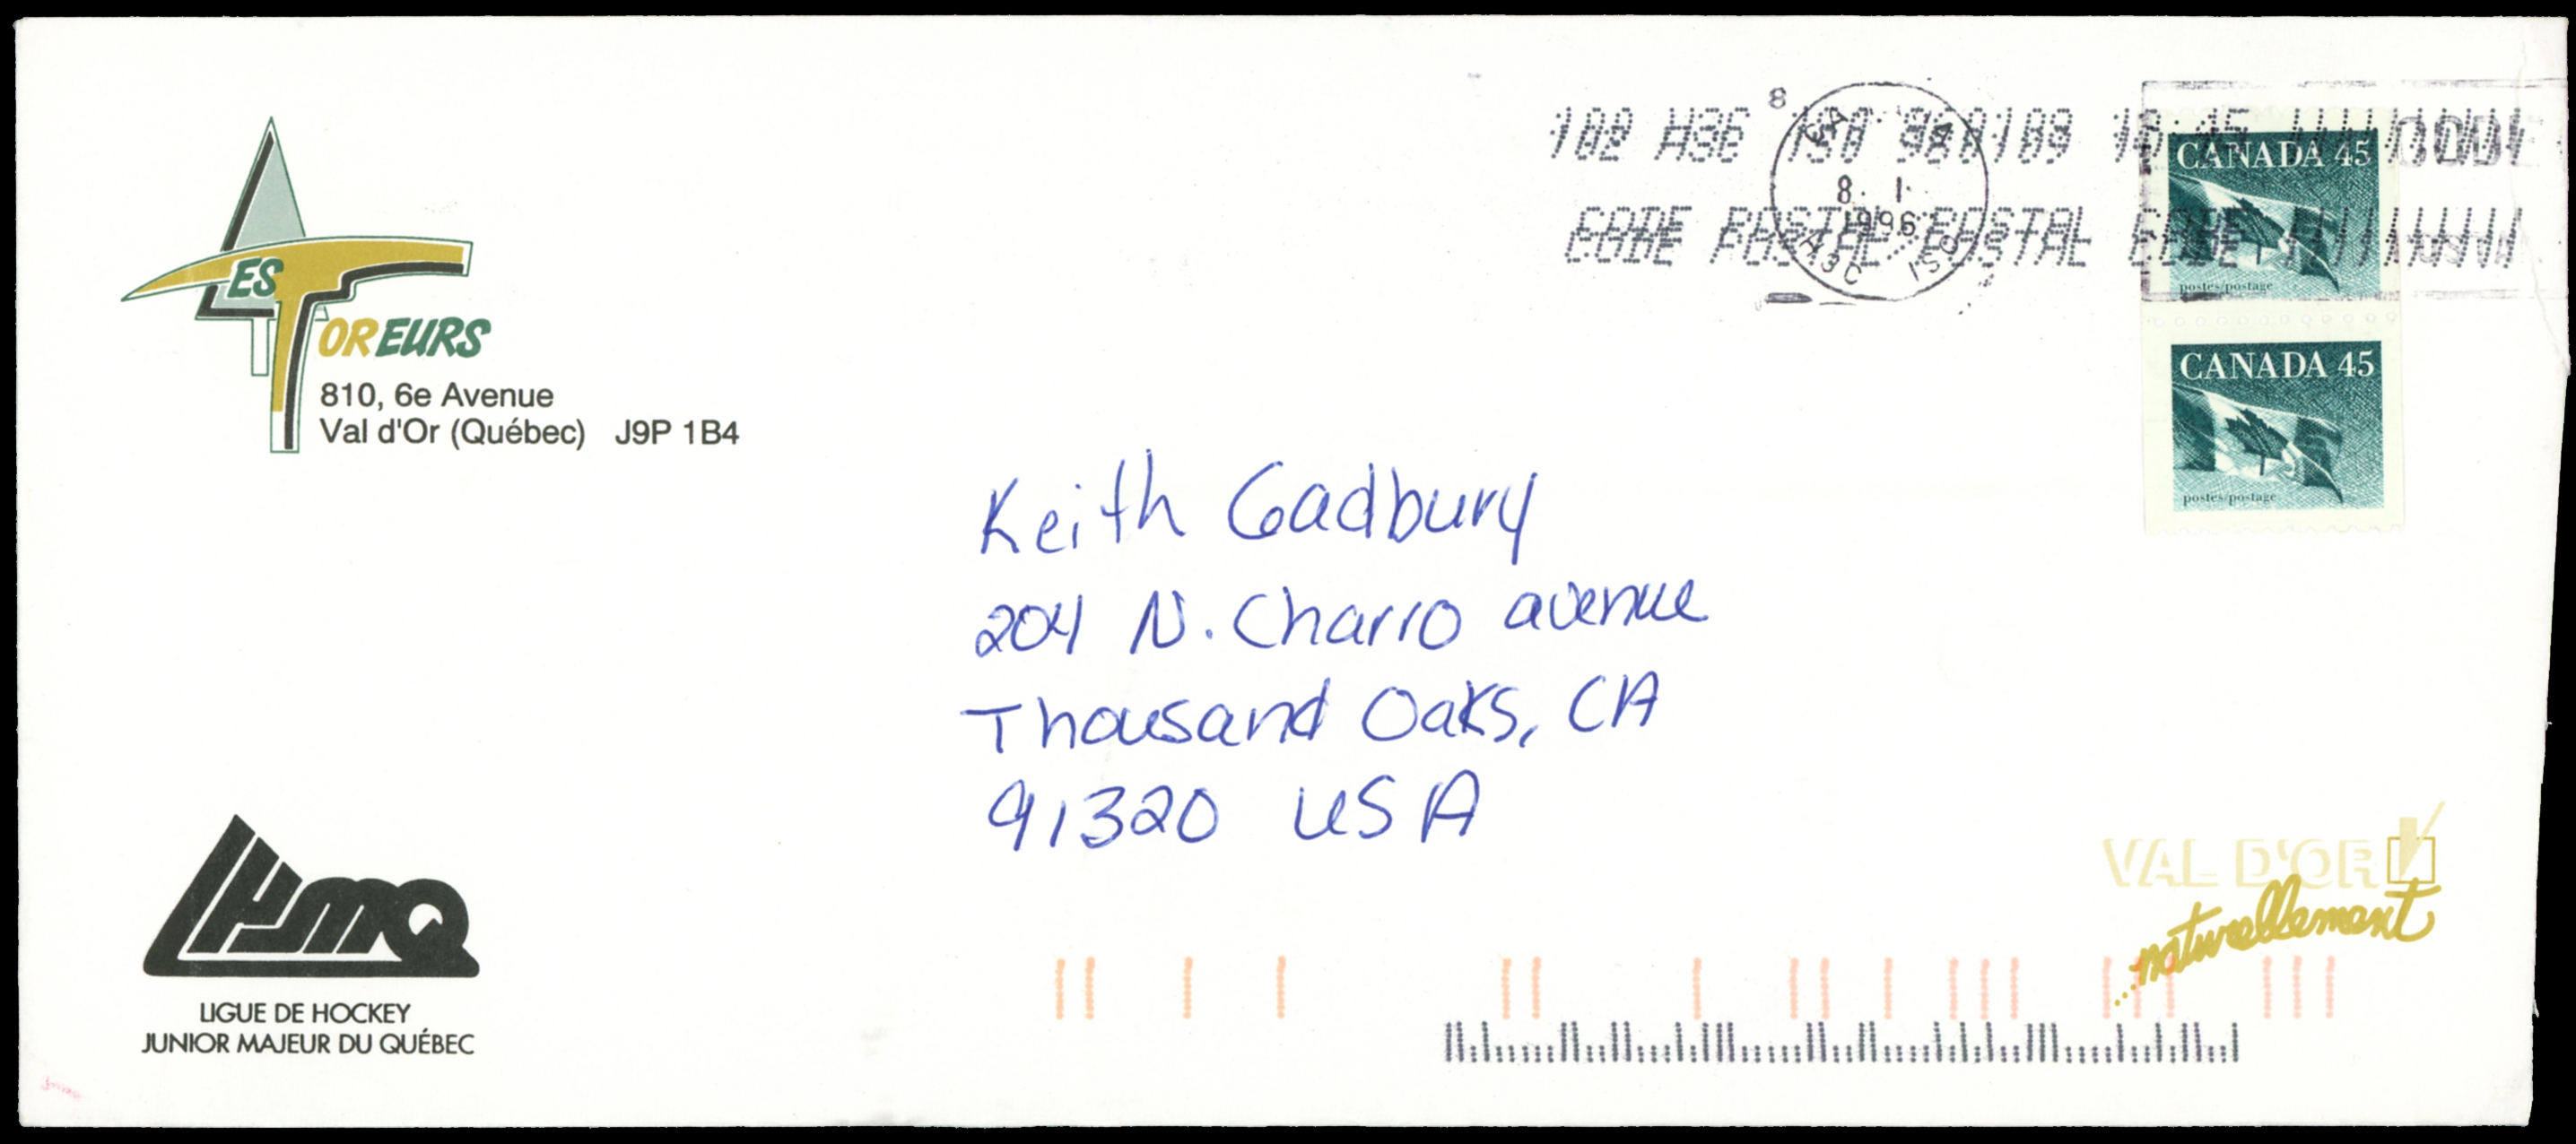 ES
TOREURS
810, 6e Avenue
Val d'Or (Québec) J9P 1B4
8
8· I·
1996
H3C 1S0
CODE POSTAL POSTAL CODE
CANADA 45
postes/postage
CANADA 45
postes/postage
Keith Gadbury
204 N. Charro avenue
Thousand Oaks, CA
91320 USA
LHJMQ
LIGUE DE HOCKEY
JUNIOR MAJEUR DU QUÉBEC
VAL D'OR
...naturellement